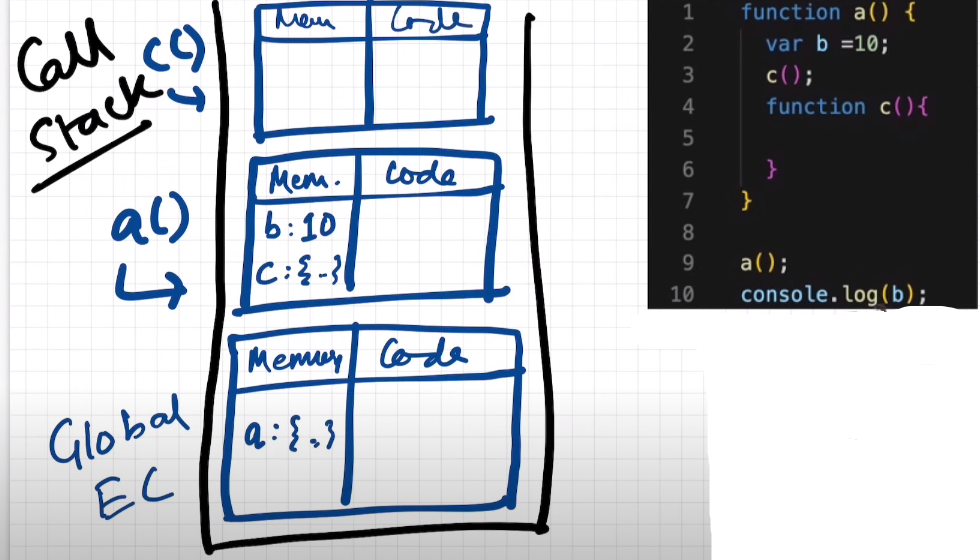 Call
Stack
c()
Mem
Code
a()
Mem.
Code
b:10
c:{-}
Global
EC
Memory
Code
a:{.,}
1 function a() {
2 var b =10;
3 c();
4 function c(){
5
6 }
7 }
8
9 a();
10 console.log(b);